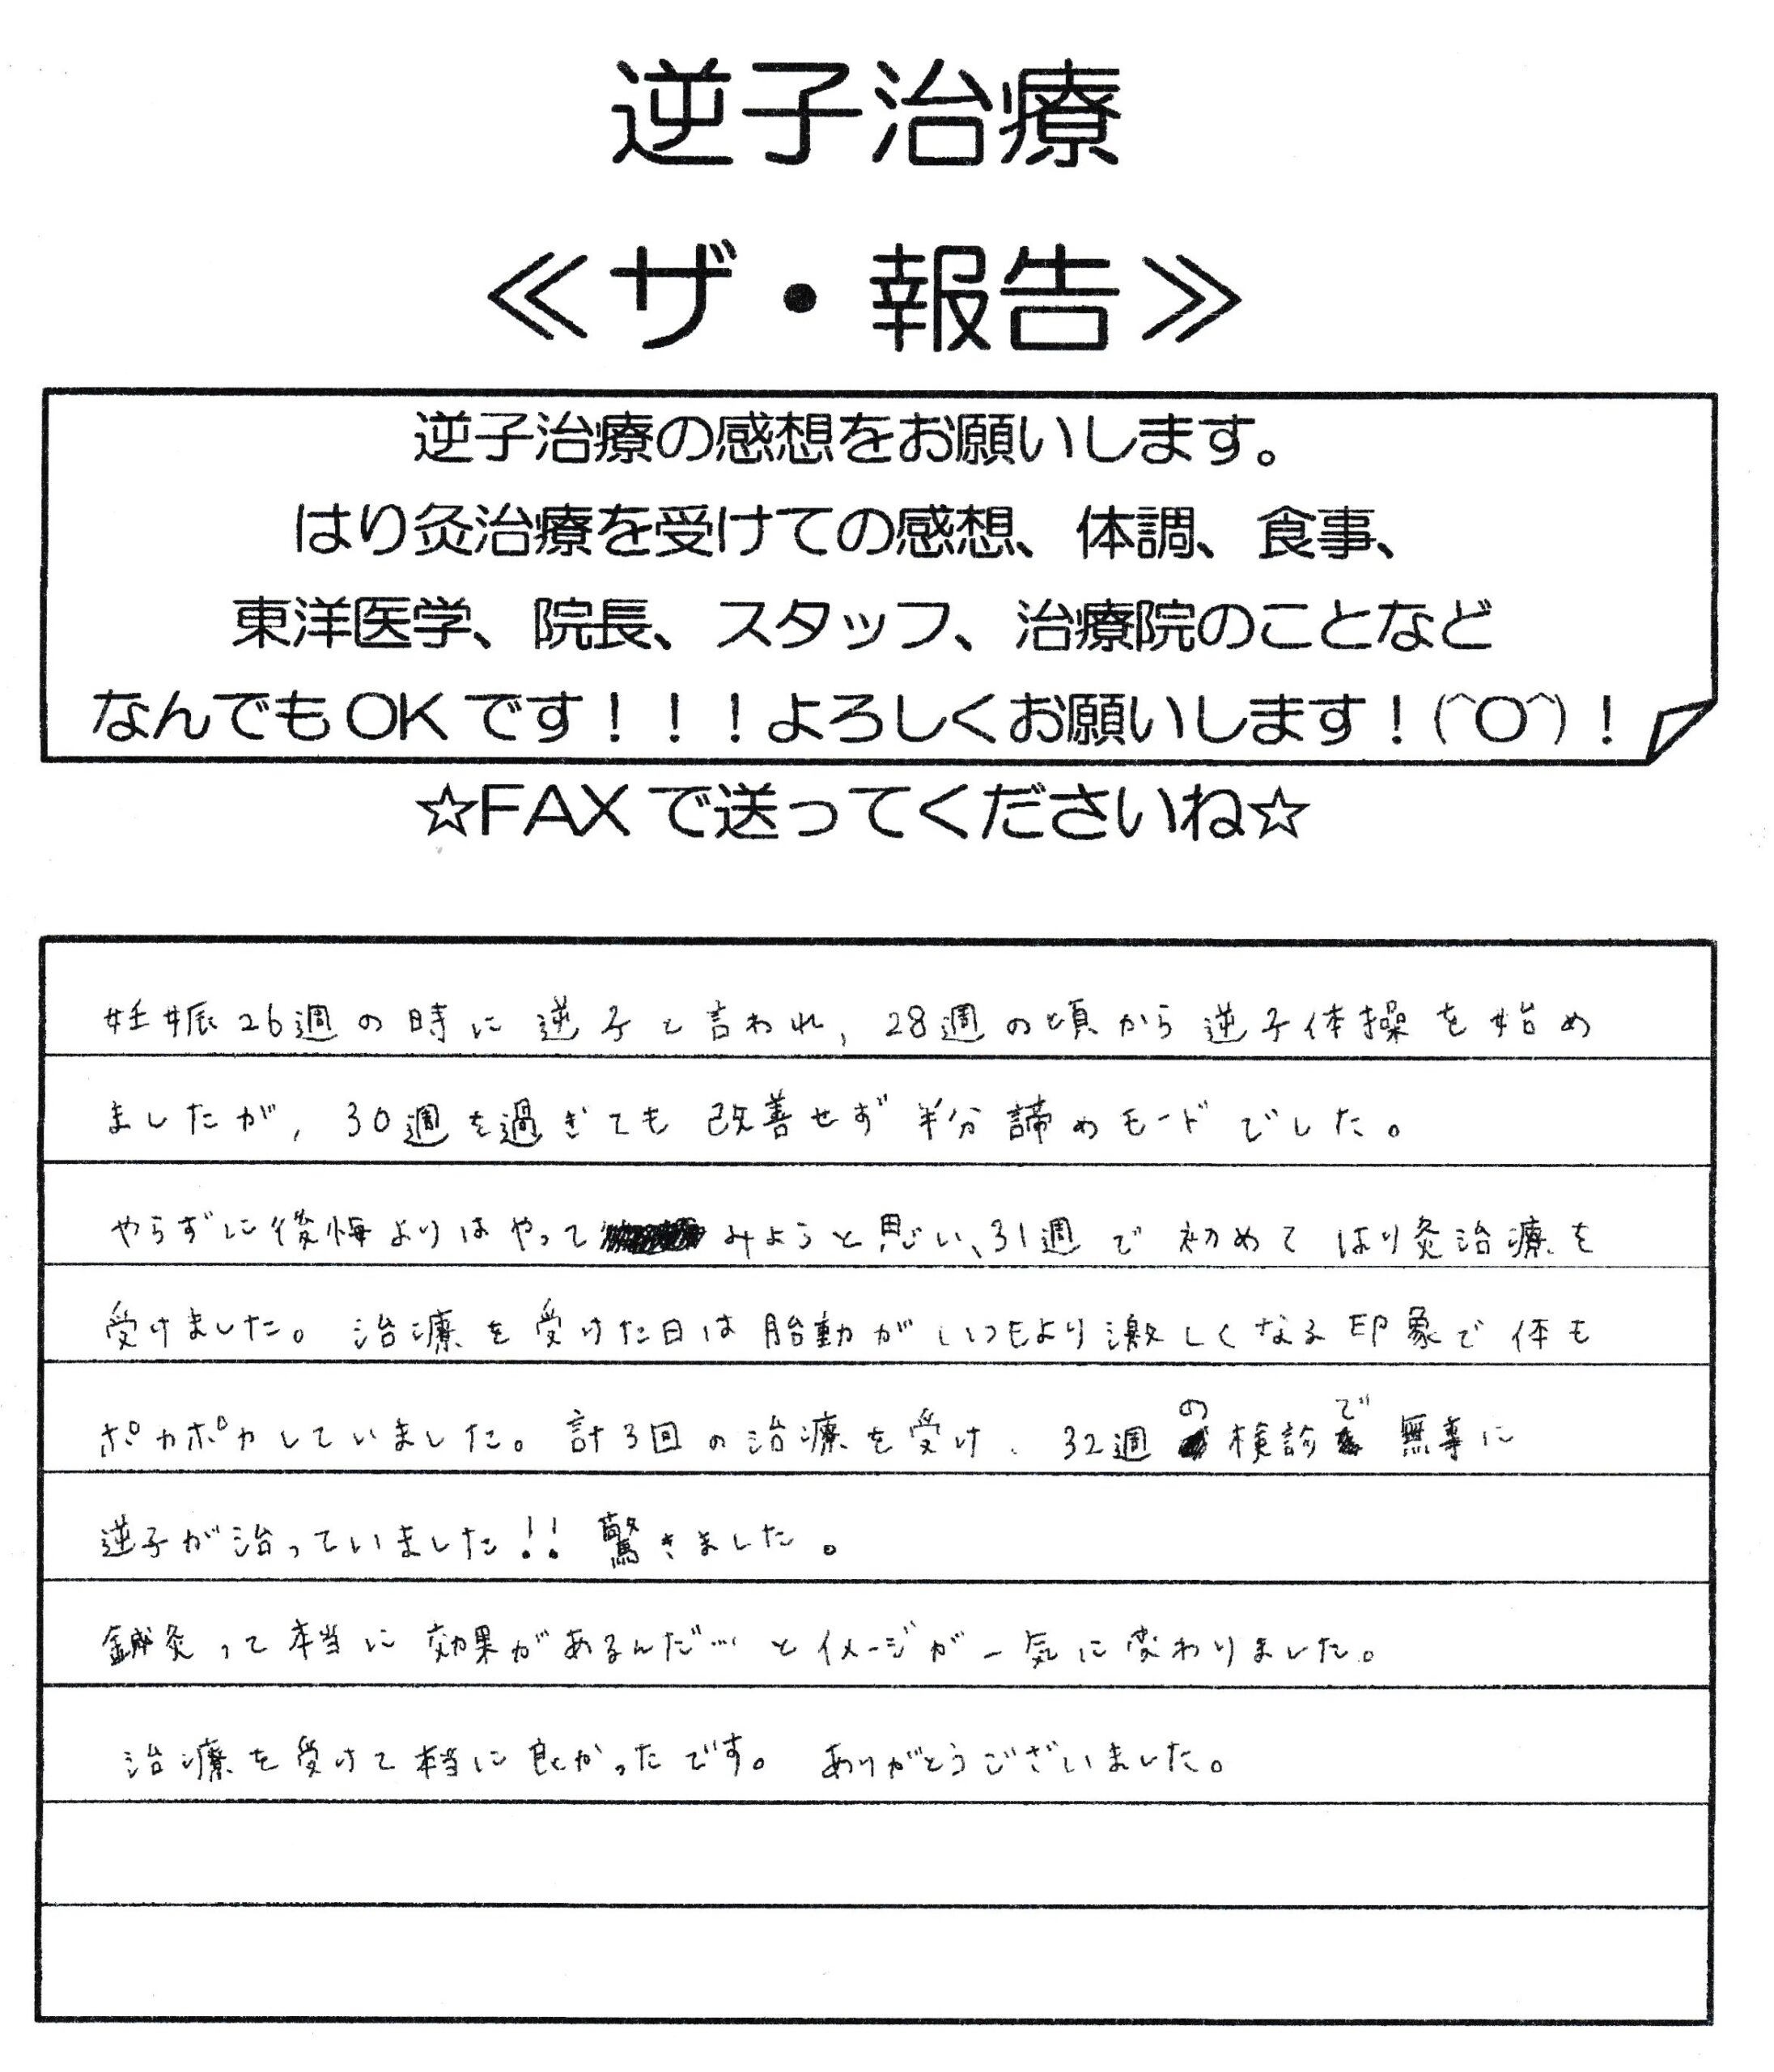 逆子治療
≪ザ・報告≫
逆子治療の感想をお願いします。
はり灸治療を受けての感想、体調、食事、
東洋医学、院長、スタッフ、治療院のことなど
なんでもOKです！！！よろしくお願いします！(^O^)！
☆FAXで送ってくださいね☆
妊娠26週の時に逆子と言われ、28週の頃から逆子体操を始め
ましたが、30週を過ぎても改善せず半分諦めモードでした。
やらずに後悔よりはやってみようと思い、31週で初めてはり灸治療を
受けました。治療を受けた日は胎動がいつもより激しくなる印象で体も
ポカポカしていました。計3回の治療を受け、32週の検診で無事に
逆子が治っていました!! 驚きました。
鍼灸って本当に効果があるんだ…とイメージが一気に変わりました。
治療を受けて本当に良かったです。ありがとうございました。